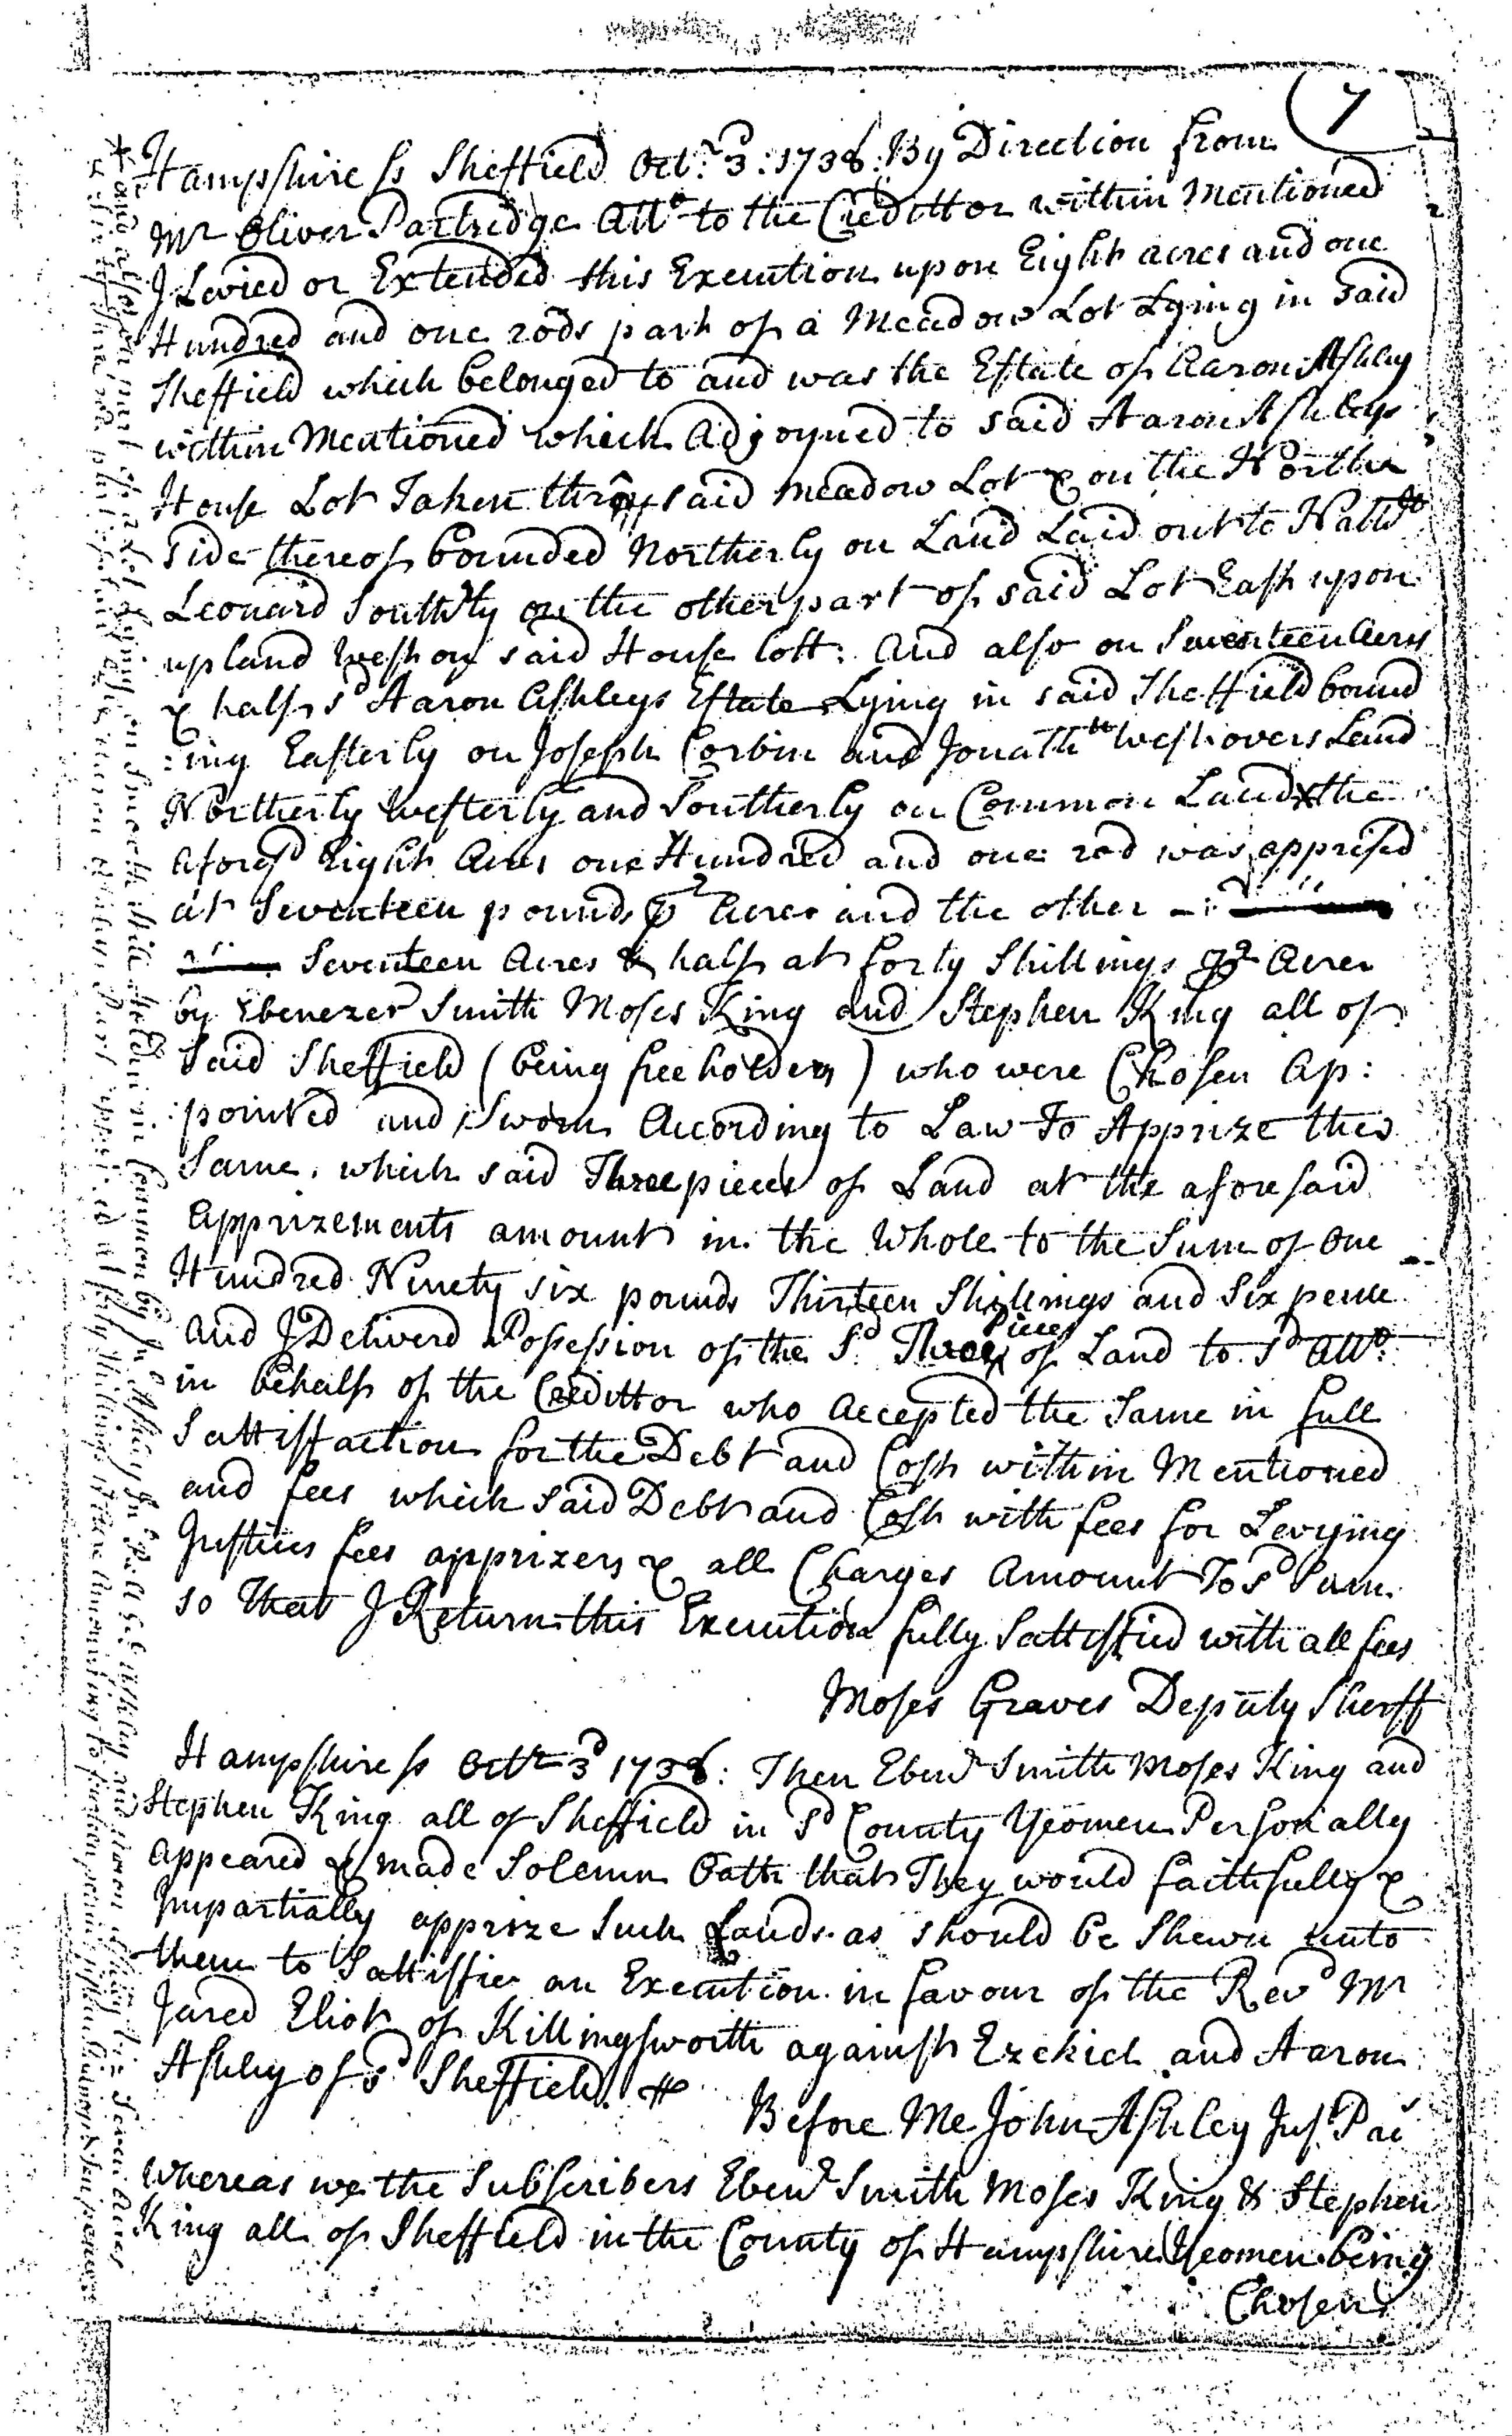 7
Hampshire ss Sheffield Octr. 3d: 1738: By Direction from
Mr Oliver Partridge Atto to the Credittor within Mentioned
I Levied or Extended this Execution upon Eight acres and one
Hundred and one rods part of a Meadow Lot Lying in said
Sheffield which belonged to and was the Estate of Aaron Ashley
within Mentioned which Adjoyned to said Aaron Ashleys
House Lot Taken thrô said meadow Lot & on the North
side thereof bounded Northerly on Land Laid out to
Leonard Southrly on the other part of said Lot East upon
upland West on said House lott: And also on Seventeen Acres
& half sd Aaron Ashleys Estate Lying in said Sheffield bound
:ing Easterly on Joseph Corbin and Jonath Westovers Land
Northerly Westerly and Southerly on Common Land * the
aforesd Eight Acres one Hundred and one rod was apprised
at Seventeen pounds pr Acre and the other
Seventeen Acres & half at forty Shillings pr Acre
by Ebenezer Smith Moses King and Stephen King all of
Said Sheffield (being freeholders) who were Chosen Ap:
:pointed and Sworn According to Law To Apprize the
Same. which said Three pieces of Land at the aforesaid
Apprizements amounts in the Whole to the Sum of One
Hundred Ninety six pounds Thirteen Shillings and Six pence
and I Deliverd Possession of the Sd. Three Pieces of Land to sd Atto.
in behalf of the Credittor who Accepted the Same in full
Sattisfaction for the Debt and Cost within Mentioned
and fees which said Debt and Cost with fees for Levying
Justices fees apprizers & all Charges Amount To sd Sum.
so That I Return this Execution fully Sattisfied with all fees
Moses Graves Deputy Sherff
Hampshire ss Octr 3d 1738: Then Ebenr Smith Moses King and
Stephen King all of Sheffield in Sd County Yeomen Personally
Appeared & made Solemn Oath that They would faithfully &
Impartially apprize Such Lands as should be Shewn unto
them to Sattisfie an Execution in favour of the Revd Mr
Jared Eliot of Killingsworth against Ezekiel and Aaron
Ashley of sd Sheffield.
Before Me John Ashley Jus Pac
Whereas we the Subscribers Ebenr Smith Moses King & Stephen
King all of Sheffield in the County of Hampshire Yeomen being
Chosen
* and also on part of a Lot Lying on in Common by sd Ashley and Aaron Ashley Seven Acres
part of sd Aaron Ashleys Part apprised at fifty Shillings Acre Amounting to